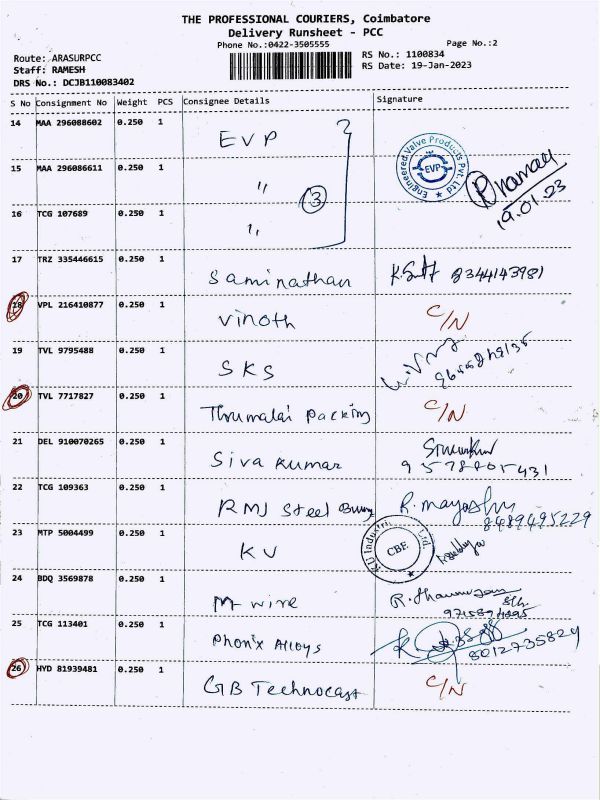 THE PROFESSIONAL COURIERS, Coimbatore
Delivery Runsheet - PCC
Phone No.:0422-3505555
Page No.:2
Route: ARASURPCC
RS No.: 1100834
Staff: RAMESH
RS Date: 19-Jan-2023
DRS No.: DCJB110083402
S No Consignment No Weight PCS Consignee Details Signature
14 MAA 296088602 0.250 1 EVP
Engineered Valve Products Pvt. Ltd EVP
15 MAA 296086611 0.250 1 " 3
19.01.23
16 TCG 107689 0.250 1 "
17 TRZ 335446615 0.250 1 Saminathan 8344143981
18 VPL 216410877 0.250 1 Vinoth C/N
19 TVL 9795488 0.250 1 SKS
20 TVL 7717827 0.250 1 Thrumalai Packing C/N
21 DEL 910070265 0.250 1 Siva Kumar
22 TCG 109363 0.250 1 RMJ Steel 8489495229
23 MTP 5004499 0.250 1 KU
KU Industri Ltd. CBE.
24 BDQ 3569878 0.250 1 M wire
25 TCG 113401 0.250 1 Phonix Alloys 8012735829
26 HYD 81939481 0.250 1 GB Technocast C/N